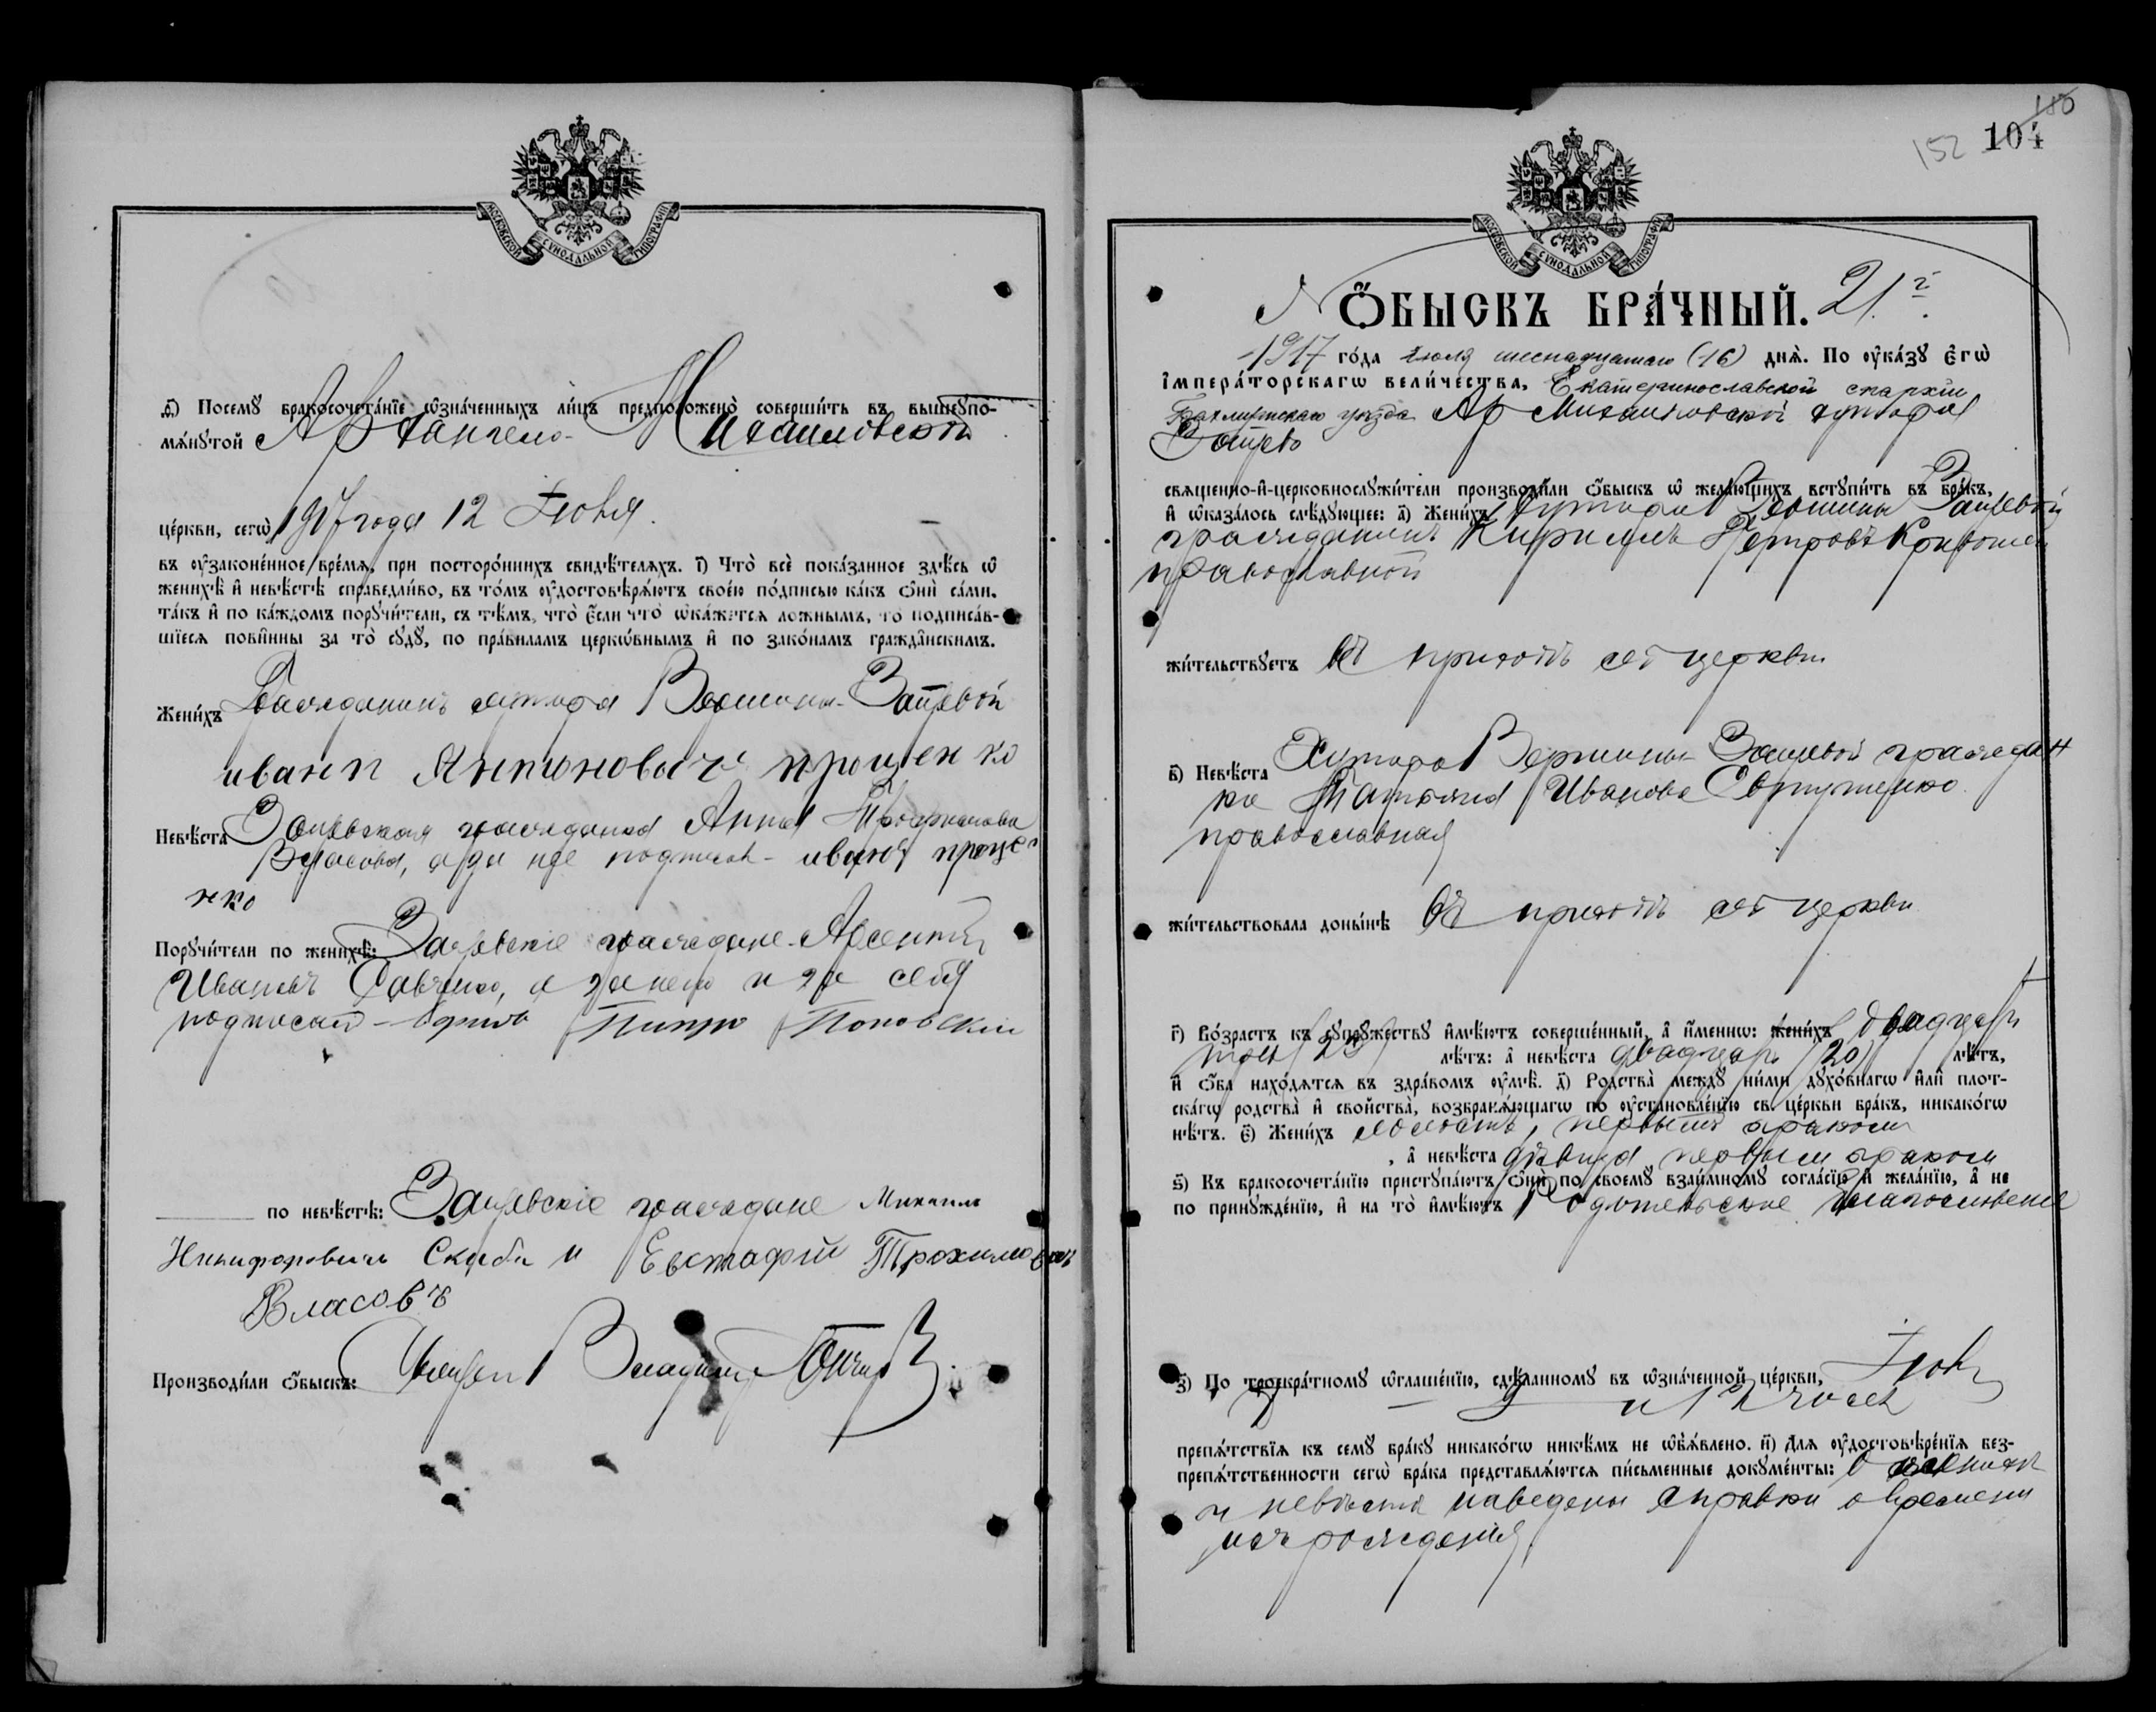 МОСКОВСКОЙ СѴНОДАЛЬНОЙ ТИПОГРАФІИ
ѳ҃) Посемꙋ бракосочета́нїе ѡ҆зна́ченныхъ ли́цъ предположено̀ соверши́ть въ вышеꙋпо-
мѧ́нꙋтой Архангело-Михаиловской
це́ркви, сегѡ̀ 1917 года 12 Іюля.
въ ᲂу҆зако́ненное вре́мѧ, при посторо́ннихъ свидѣ́телѧхъ. і҃) Что̀ всѐ пока́занное здѣ́сь ѡ҆
женихѣ̀ и҆ невѣ́стѣ справедли́во, въ то́мъ ᲂу҆достовѣрѧ́ютъ свое́ю по́дписью ка́къ ѻ҆нѝ са́ми,
та́къ и҆ по ка́ждомъ порꙋчи́тели, съ тѣ́мъ, что̀ є҆́сли что̀ ѡ҆ка́жетсѧ ло́жнымъ, то̀ подписа́в-
шїесѧ пови́нны за то̀ сꙋдꙋ̀, по пра́виламъ церко́внымъ и҆ по зако́намъ гражда́нскимъ.
Жени́хъ Гражданинъ хутора Вершины-Зайцевой
иванъ Антоновичъ проценко
Невѣ́ста Зайцевская гражданка Анна Трофимова
Власова, а за нее подписал- иванъ проце-
нко
Порꙋчи́тели по женихѣ̀: Зайцевскіе граждане-Арсентій
Ивановъ Савченко, а за него и за себя
подписал- Поповскій
по невѣ́стѣ: Зайцевскіе граждане Михаилъ
Никифоровичъ Скиба и Евстафій Трохимовичъ
Власовъ
Производи́ли ѻ҆́быскъ: Священ Владимир
152 104
МОСКОВСКОЙ СѴНОДАЛЬНОЙ ТИПОГРАФІИ
N Ѻ҆́БЫСКЪ БРА́ЧНЫЙ. 21.
1917 го́да Іюля шеснадцатаго (16) днѧ̀. По ᲂу҆ка́зꙋ є҆гѡ̀
І҆мпера́торскагѡ вели́чества, Екатеринославской епархіи
Бахмутскаго уѣзда Ар Михаиловской хутора
Зайцево
свѧще́нно-и҆-церковнослꙋжи́тели производи́ли ѻ҆́быскъ ѡ҆ жела́ющихъ встꙋпи́ть въ бра́къ,
и҆ ѡ҆каза́лось слѣ́дꙋющее: а҃) Жени́хъ Хутора Вершины Зайцевой
гражданинъ Кириллъ Петровъ
православной
жи́тельствꙋетъ въ приходѣ сей церкви
в҃) Невѣ́ста Хутора Вершины-Зайцевой граждан
ка Татьяна Иванова Евтушенко
православная
жи́тельствовала донынѣ въ приходѣ сей церкви
г҃) Во́зрастъ къ сꙋпрꙋ́жествꙋ и҆мѣ́ютъ соверше́нный, а҆ и҆́менно: жени́хъ двадцать
три (23) лѣ́тъ: а҆ невѣ́ста двадцать (20) лѣ́тъ,
и҆ ѻ҆́ба нахо́дѧтсѧ въ здра́вомъ ᲂу҆мѣ̀. д҃) Родства̀ междꙋ̀ ни́ми дꙋхо́внагѡ и҆лѝ плот-
ска́гѡ родства̀ и҆ свойства̀, возбранѧ́ющагѡ по ᲂу҆становле́нїю св. це́ркви бра́къ, никако́гѡ
нѣ́тъ. є҃) Жени́хъ холостъ, первымъ бракомъ
, а҆ невѣ́ста дѣвица первым браком
ѕ҃) Къ бракосочета́нїю приступа́ютъ ѻ҆нѝ по своемꙋ̀ взаи́мномꙋ согла́сїю и҆ жела́нїю, а҆ не
по принꙋжде́нїю, и҆ на то̀ и҆мѣ́ютъ Родительское благословеніе
з҃) По троекра́тномꙋ ѡ҆глаше́нїю, сдѣ́ланномꙋ въ ѡ҆зна́ченной це́ркви, Іюля
9 и 12 числ
препѧ́тствїѧ къ семꙋ̀ бра́кꙋ никако́гѡ никѣ́мъ не ѡ҆б̾ѧ́влено. и҃) Длѧ ᲂу҆достовѣре́нїѧ без-
препѧ́тственности сегѡ̀ бра́ка представлѧ́ютсѧ пи́сьменные докꙋме́нты: О женихѣ
и невѣстѣ наведены справки о времени
ихъ рожденія.